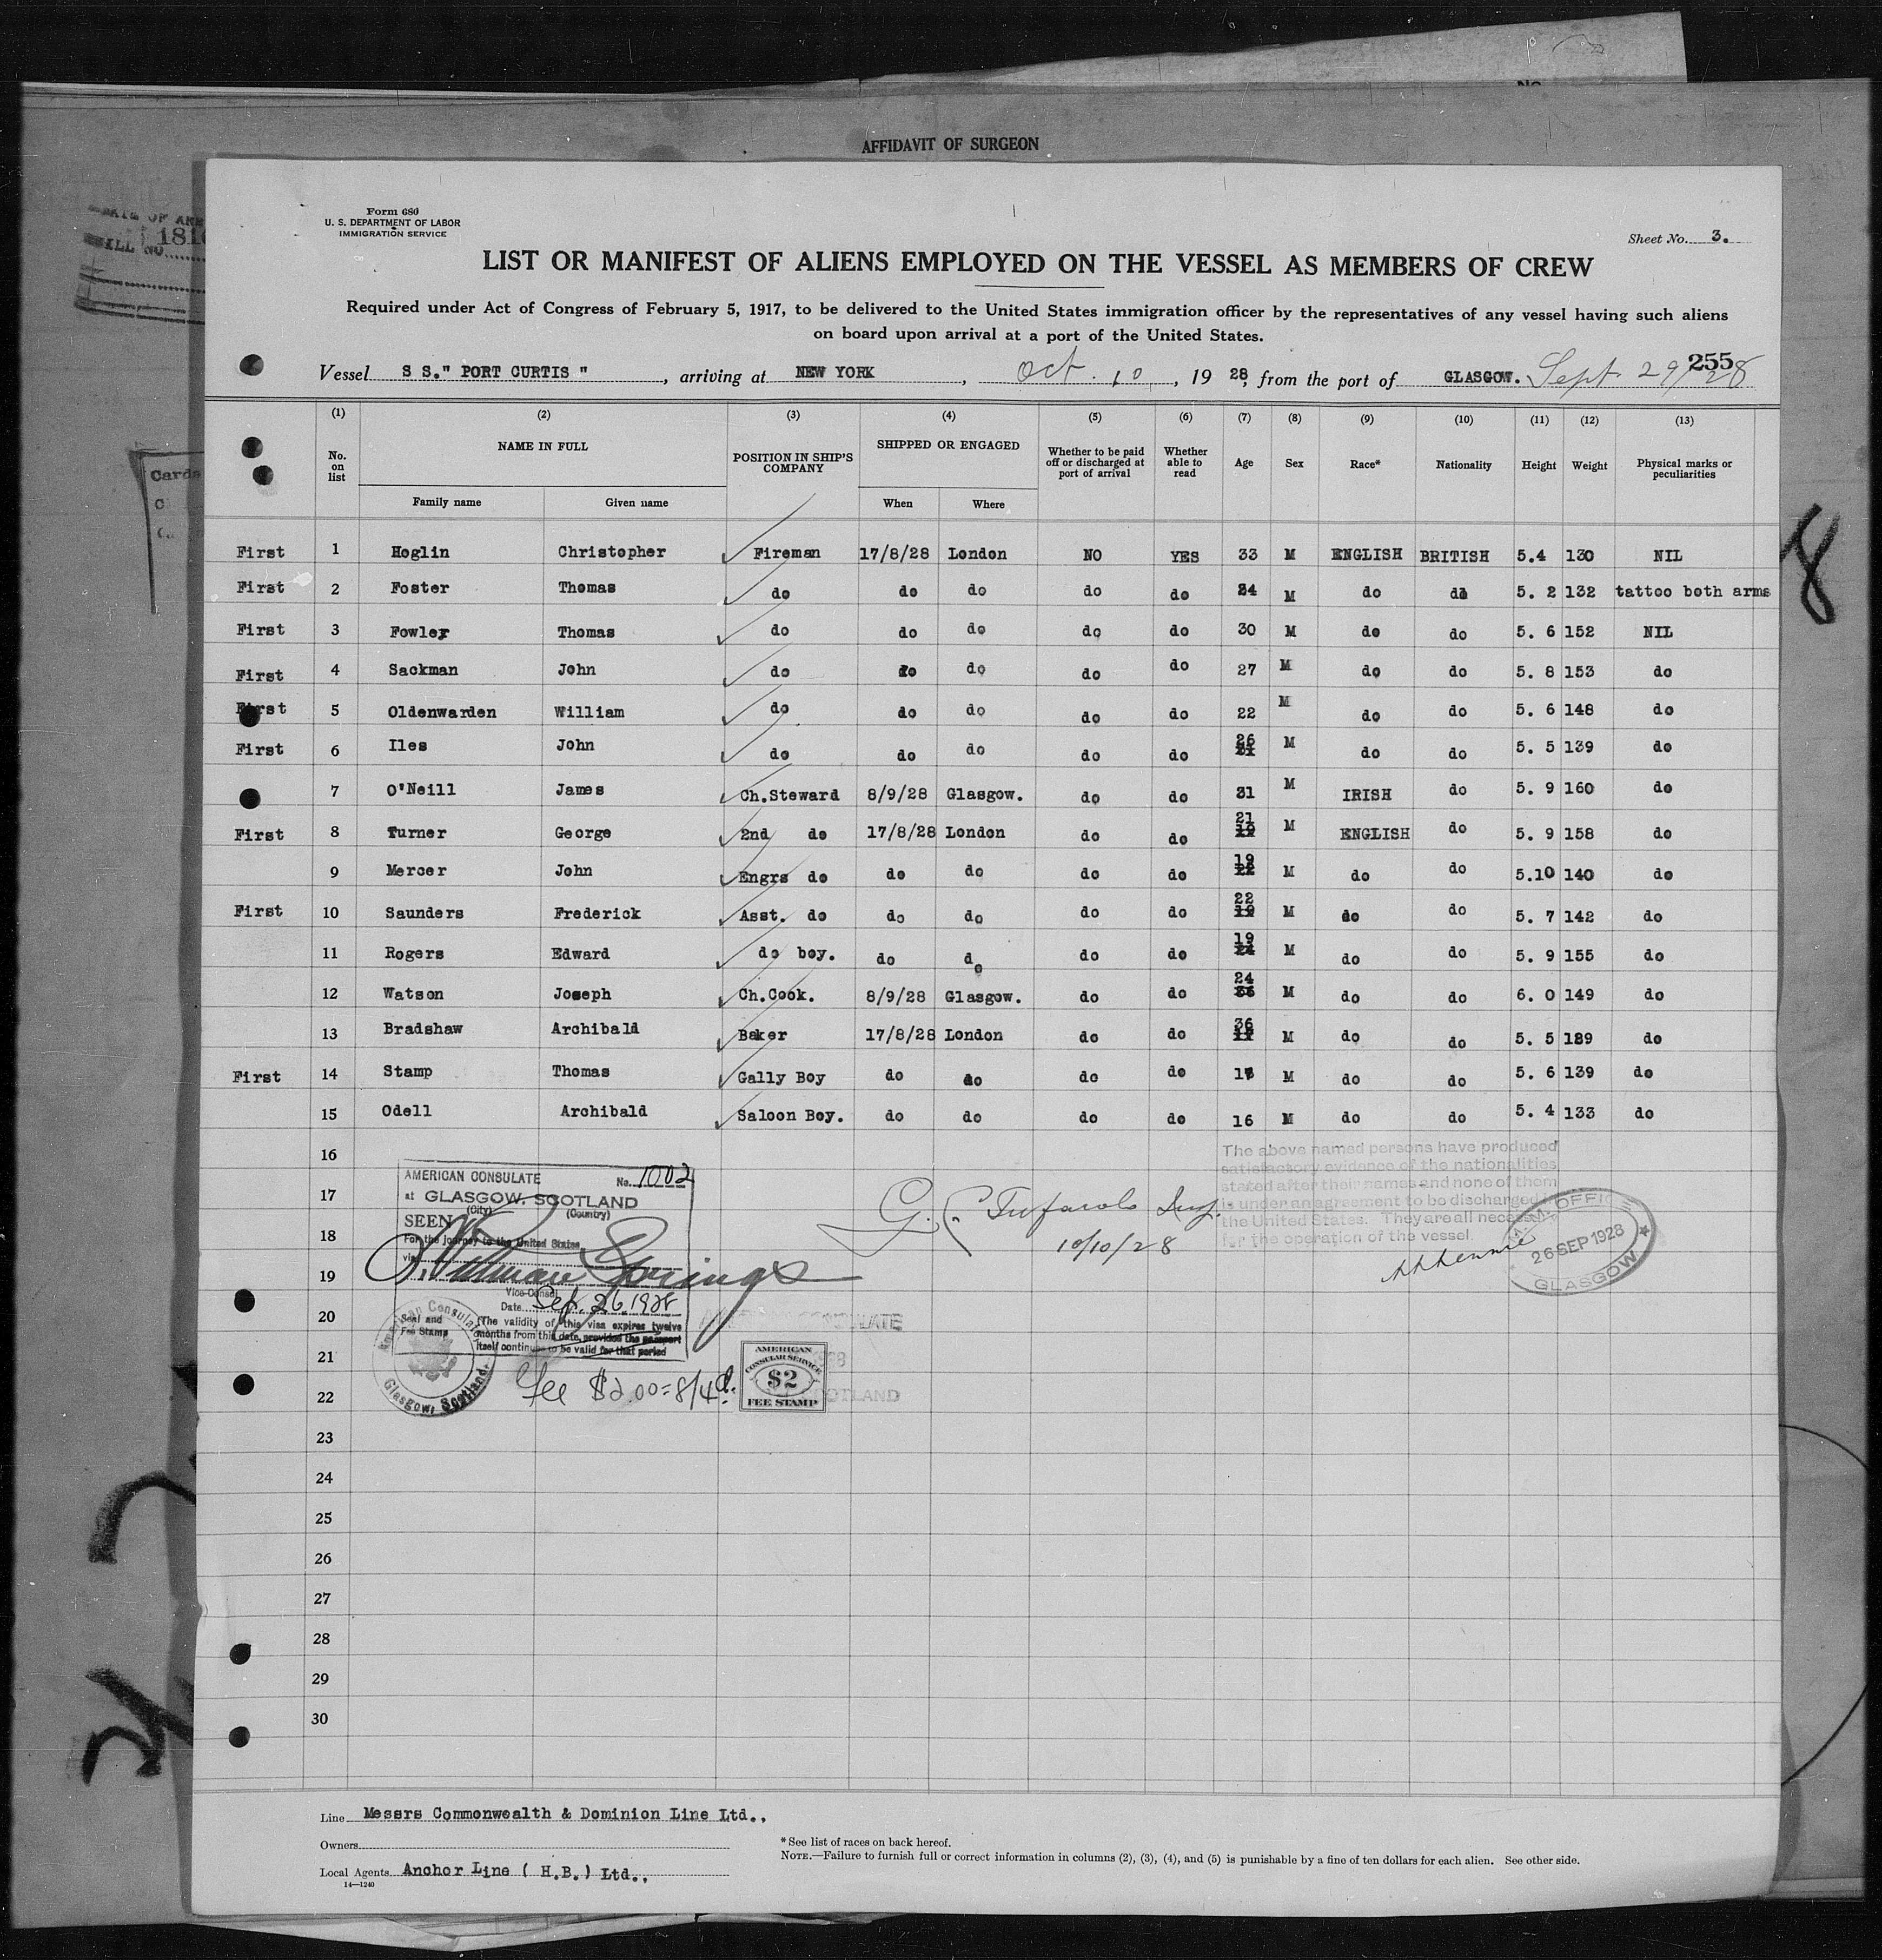 AFFIDAVIT OF SURGEON
Form 680
U. S. DEPARTMENT OF LABOR
IMMIGRATION SERVICE
Sheet No. 3.
LIST OR MANIFEST OF ALIENS EMPLOYED ON THE VESSEL AS MEMBERS OF CREW
Required under Act of Congress of February 5, 1917, to be delivered to the United States immigration officer by the representatives of any vessel having such aliens
on board upon arrival at a port of the United States.
255
Vessel S S." PORT CURTIS ", arriving at NEW YORK, Oct. 10, 19 28, from the port of GLASGOW. Sept. 29/28
(1) (2) (3) (4) (5) (6) (7) (8) (9) (10) (11) (12) (13)
No. on list NAME IN FULL Family name Given name POSITION IN SHIP'S COMPANY SHIPPED OR ENGAGED When Where Whether to be paid off or discharged at port of arrival Whether able to read Age Sex Race* Nationality Height Weight Physical marks or peculiarities
First 1 Hoglin Christopher Fireman 17/8/28 London NO YES 33 M ENGLISH BRITISH 5.4 130 NIL
First 2 Foster Thomas do do do do do 24 M do do 5. 2 132 tattoo both arms
First 3 Fowler Thomas do do do do do 30 M do do 5. 6 152 NIL
First 4 Sackman John do do do do do 27 M do do 5. 8 153 do
First 5 Oldenwarden William do do do do do 22 M do do 5. 6 148 do
First 6 Iles John do do do do do 26 M do do 5. 5 139 do
7 O'Neill James Ch.Steward 8/9/28 Glasgow. do do 31 M IRISH do 5. 9 160 do
First 8 Turner George 2nd do 17/8/28 London do do 21 M ENGLISH do 5. 9 158 do
9 Mercer John Engrs do do do do do 19 M do do 5.10 140 do
First 10 Saunders Frederick Asst. do do do do do 22 M do do 5. 7 142 do
11 Rogers Edward do boy. do do do do 19 M do do 5. 9 155 do
12 Watson Joseph Ch.Cook. 8/9/28 Glasgow. do do 24 M do do 6. 0 149 do
13 Bradshaw Archibald Baker 17/8/28 London do do 36 M do do 5. 5 189 do
First 14 Stamp Thomas Gally Boy do do do do M do do 5. 6 139 do
15 Odell Archibald Saloon Boy. do do do do 16 M do do 5. 4 133 do
16
17
18
19
20
21
22
23
24
25
26
27
28
29
30
AMERICAN CONSULATE No. 1002
at GLASGOW, SCOTLAND
(City) (Country)
SEEN
For the journey to the United States
via
Vice-Consul
Date Sep. 26, 1928
Seal and Fee Stamp
(The validity of this visa expires twelve
months from this date, provided the passport
itself continues to be valid for that period
American Consulate
Glasgow, Scotland.
fee $2.00=8/4d.
AMERICAN
CONSULAR SERVICE
$2
FEE STAMP
10/10/28
The above named persons have produced
satisfactory evidence of the nationalities
stated after their names and none of them
is under an agreement to be discharged in
the United States. They are all necessary
for the operation of the vessel.
26 SEP 1928
GLASGOW
8
Line Messrs Commonwealth & Dominion Line Ltd.,
Owners
Local Agents Anchor Line ( H.B. ) Ltd.,
14—1240
*See list of races on back hereof.
NOTE.—Failure to furnish full or correct information in columns (2), (3), (4), and (5) is punishable by a fine of ten dollars for each alien. See other side.